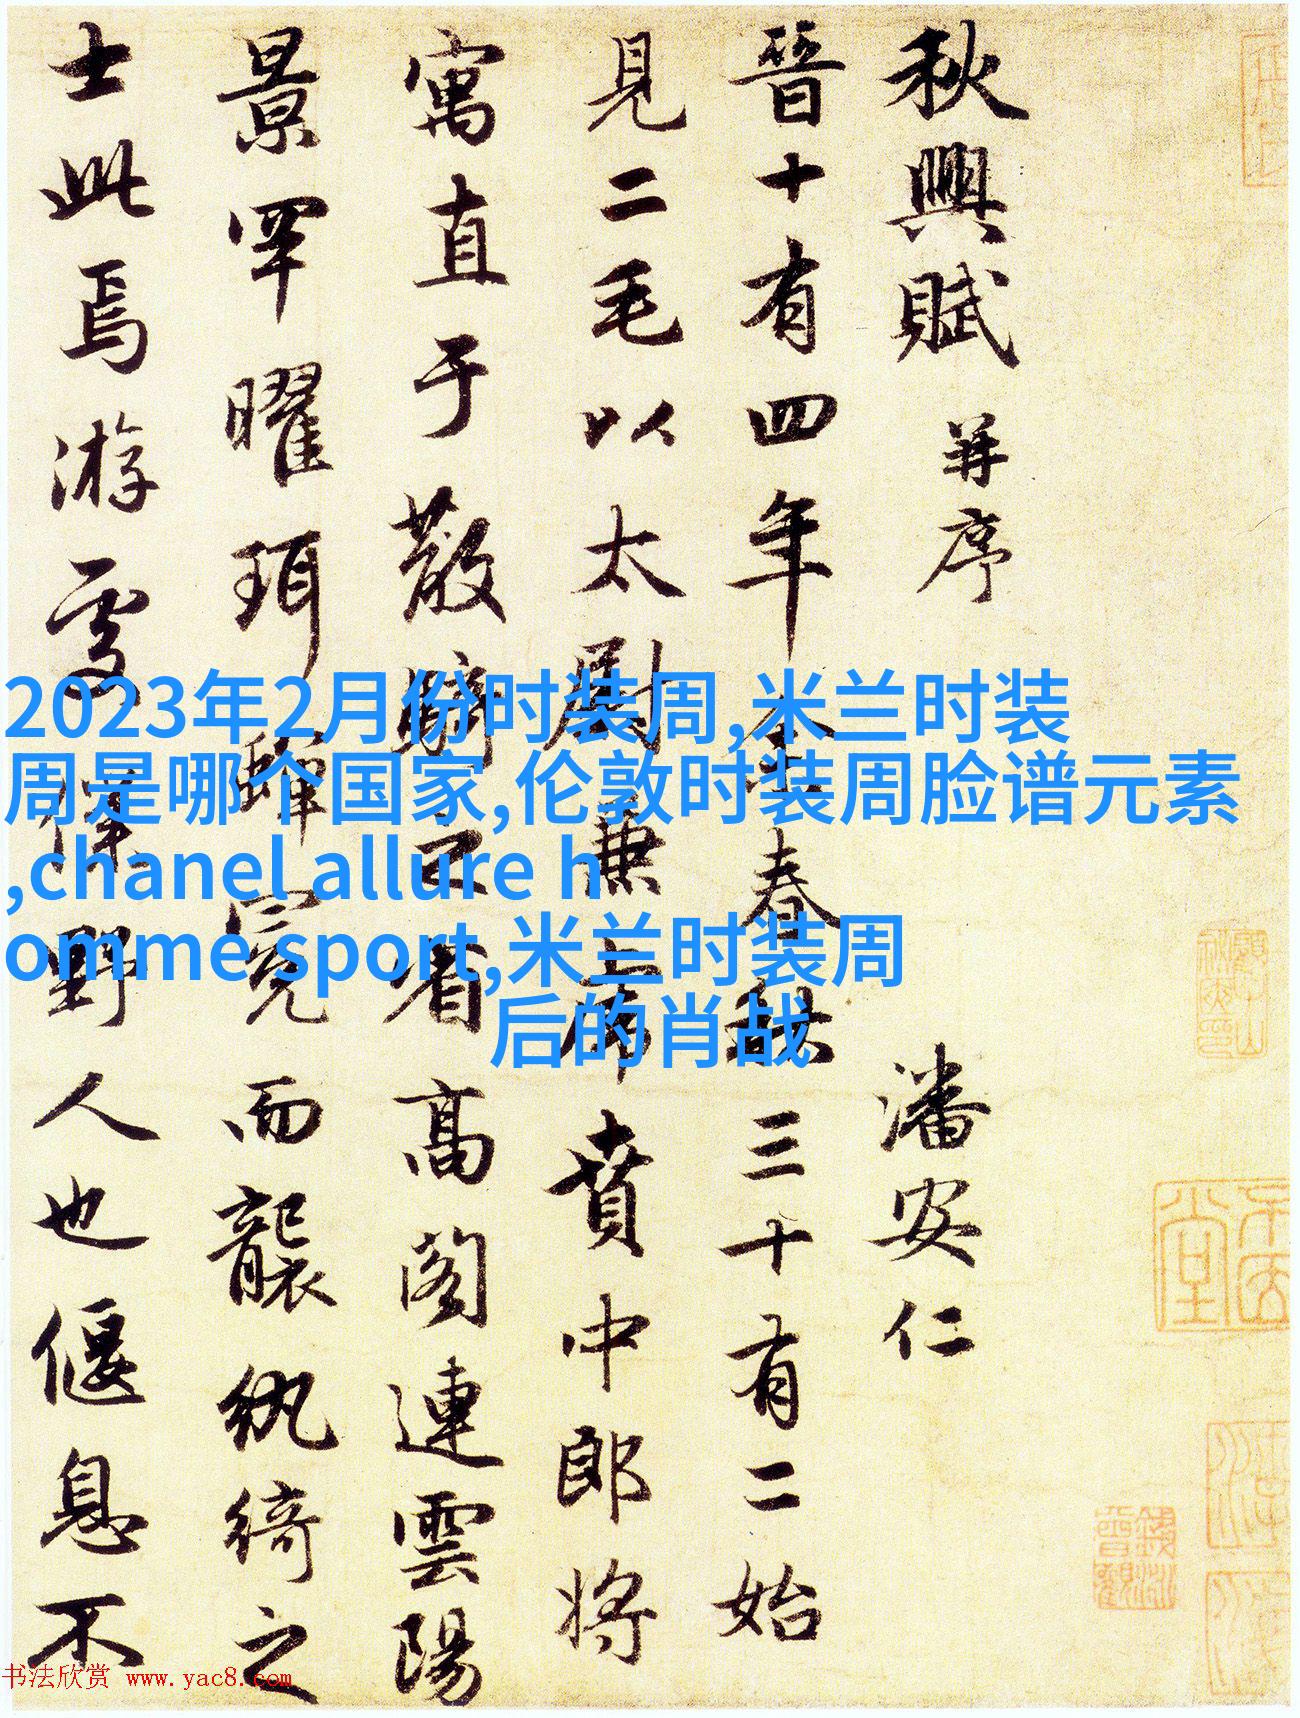 秋興賦 并序 潘安仁
晉十有四年余春秋三十有二始
見二毛以太尉兼虎賁中郎将
寓直于散騎之省高閣連雲陽
景罕曜珥蟬冕而襲紈綺之
士此焉游處僕野人也偃息不
2023年2月份时装周,米兰时装
周是哪个国家,伦敦时装周脸谱元素
,chanel allure h
omme sport,米兰时装周
后的肖战
书法欣赏 www.yac8.com